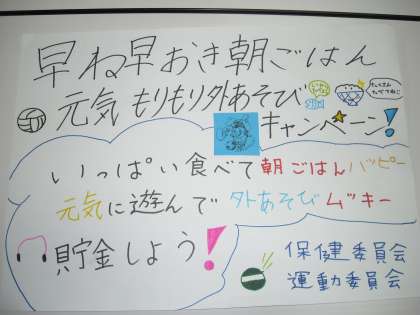 早ね早おき朝ごはん
元気もりもり外あそび
たくさん
たべてね
キャンペーン!
いっぱい食べて朝ごはんハッピー
元気に遊んで外あそびムッキー
貯金しよう!
保健委員会
運動委員会